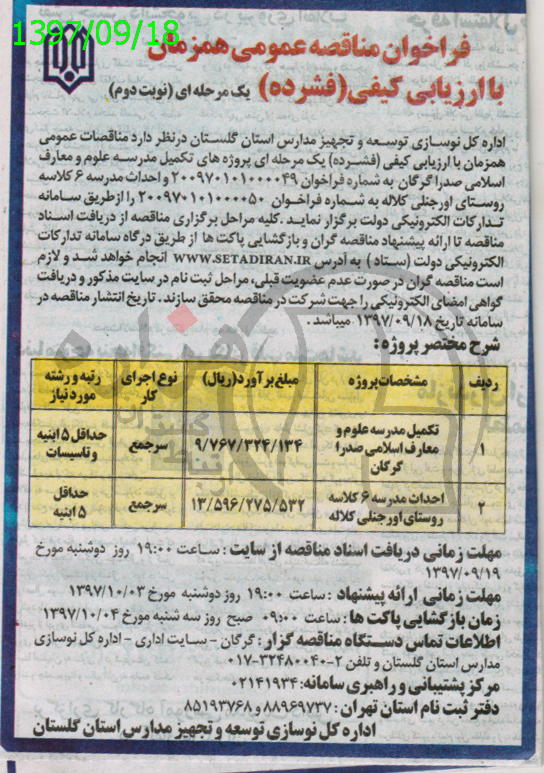 1397/09/18
فراخوان مناقصه عمومی همزمان
با ارزیابی کیفی (فشرده) یک مرحله ای (نوبت دوم)
اداره کل نوسازی توسعه و تجهیز مدارس استان گلستان درنظر دارد مناقصات عمومی
همزمان با ارزیابی کیفی (فشرده) یک مرحله ای پروژه های تکمیل مدرسه علوم و معارف
اسلامی صدرا گرگان به شماره فراخوان ۲۰۰۹۷۰۱۰۱۰۰۰۰۴۹ و احداث مدرسه ۶ کلاسه
روستای اورجنلی کلاله به شماره فراخوان ۲۰۰۹۷۰۱۰۱۰۰۰۰۵۰ را ازطریق سامانه
تدارکات الکترونیکی دولت برگزار نماید. کلیه مراحل برگزاری مناقصه از دریافت اسناد
مناقصه تا ارائه پیشنهاد مناقصه گران و بازگشایی پاکت ها از طریق درگاه سامانه تدارکات
الکترونیکی دولت (ستاد) به آدرس WWW.SETADIRAN.IR انجام خواهد شد و لازم
است مناقصه گران در صورت عدم عضویت قبلی، مراحل ثبت نام در سایت مذکور و دریافت
گواهی امضای الکترونیکی را جهت شرکت در مناقصه محقق سازند. تاریخ انتشار مناقصه در
سامانه تاریخ ۱۳۹۷/۰۹/۱۸ میباشد.
شرح مختصر پروژه:
ردیف مشخصات پروژه مبلغ برآورد (ریال) نوع اجرای کار رتبه و رشته مورد نیاز
۱ تکمیل مدرسه علوم و معارف اسلامی صدرا گرگان ۹/۷۶۷/۳۲۴/۱۳۴ سرجمع حداقل ۵ ابنیه و تاسیسات
۲ احداث مدرسه ۶ کلاسه روستای اورجنلی کلاله ۱۳/۵۹۶/۲۷۵/۵۳۲ سرجمع حداقل ۵ ابنیه
مهلت زمانی دریافت اسناد مناقصه از سایت: ساعت ۱۹:۰۰ روز دوشنبه مورخ
۱۳۹۷/۰۹/۱۹
مهلت زمانی ارائه پیشنهاد: ساعت ۱۹:۰۰ روز دوشنبه مورخ ۱۳۹۷/۱۰/۰۳
زمان بازگشایی پاکت ها: ساعت ۰۹:۰۰ صبح روز سه شنبه مورخ ۱۳۹۷/۱۰/۰۴
اطلاعات تماس دستگاه مناقصه گزار: گرگان - سایت اداری - اداره کل نوسازی
مدارس استان گلستان و تلفن ۲-۰۱۷-۳۲۴۸۰۰۴۰
مرکز پشتیبانی و راهبری سامانه: ۰۲۱۴۱۹۳۴
دفتر ثبت نام استان تهران: ۸۸۹۶۹۷۳۷ و ۸۵۱۹۳۷۶۸
اداره کل نوسازی توسعه و تجهیز مدارس استان گلستان